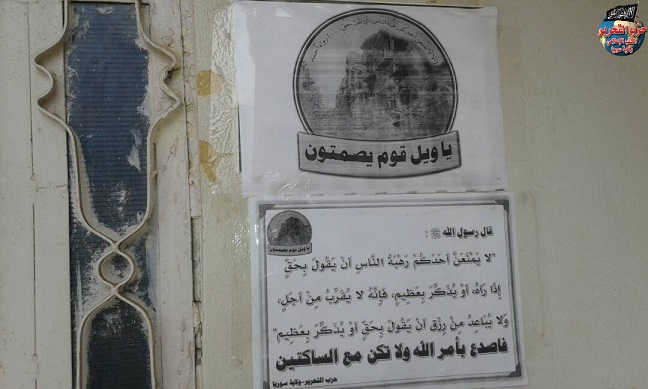 حزب التحرير
ولاية سوريا
يا ويل قوم يصمتون
يا ويل قوم يصمتون
قال رسول الله ﷺ :
"لا يَمْنَعَنَّ أَحَدَكُمْ رَهْبَةُ النَّاسِ أَنْ يَقُولَ بِحَقٍّ
إِذَا رَآهُ، أَوْ يُذَكِّرَ بِعَظِيمٍ، فَإِنَّهُ لا يُقَرِّبُ مِنْ أَجَلٍ،
وَلا يُبَاعِدُ مِنْ رِزْقٍ أَنْ يَقُولَ بِحَقٍّ أَوْ يُذَكِّرَ بِعَظِيمٍ"
فاصدع بأمر الله ولا تكن مع الساكتين
حزب التحرير-ولاية سوريا